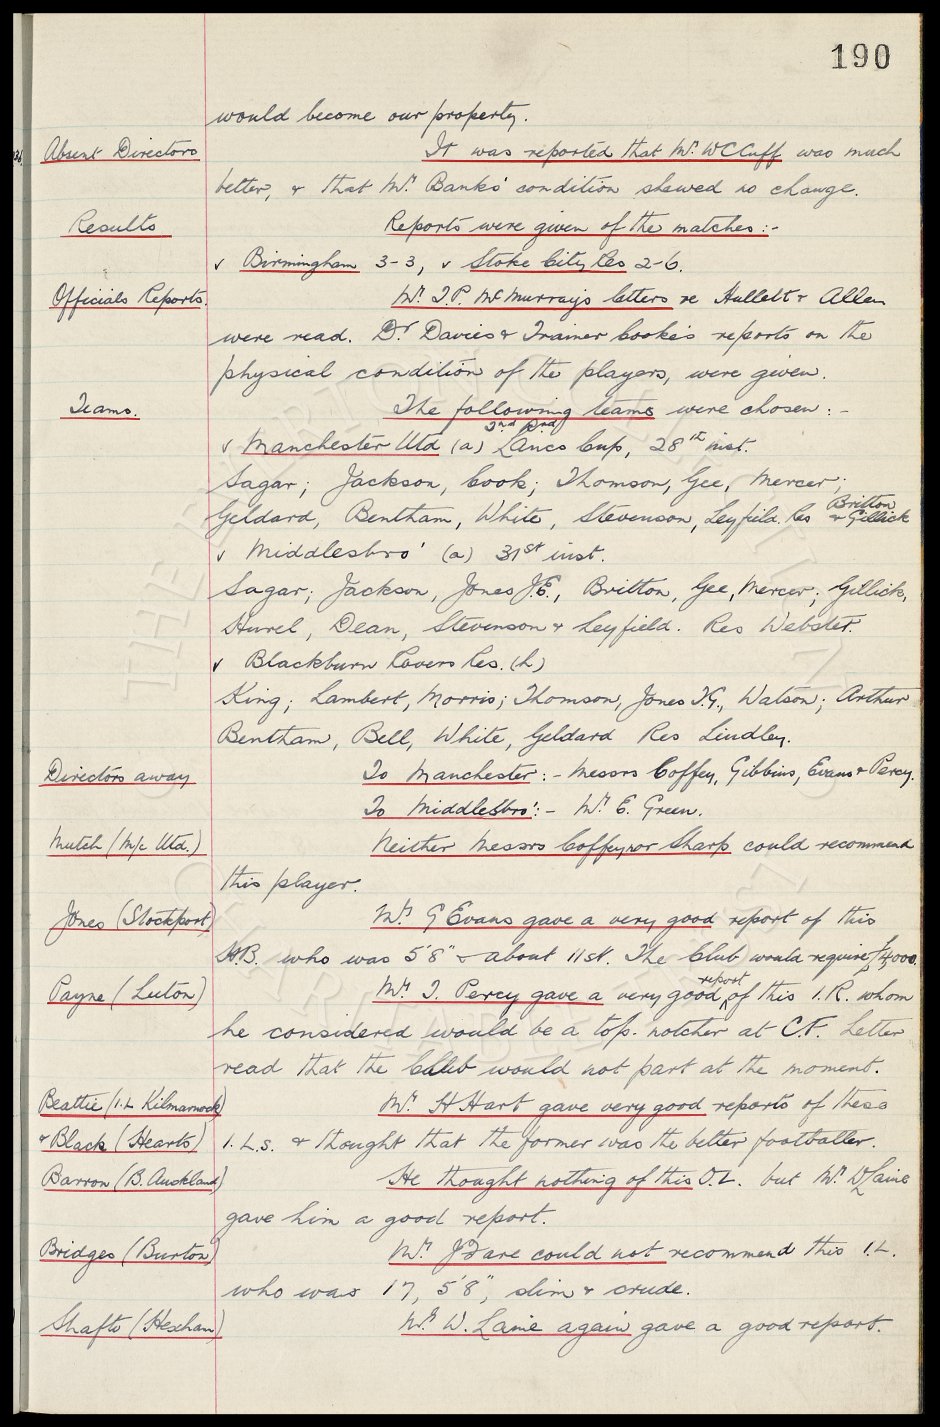 190
would become our property.
Absent Directors It was reported that Mr. W C Cuff was much
better, & that Mr. Banks' condition shewed no change.
Results Reports were given of the matches :-
v Birmingham 3-3, v Stoke City Res 2-6.
Officials Reports. Mr. T.P. McMurray's letters re Hullett & Allen
were read. Dr. Davies & Trainer Cooke's reports on the
physical condition of the players, were given.
Teams. The following teams were chosen :-
v Manchester Utd (a) 2nd Rnd Lancs Cup, 28th inst.
Sagar; Jackson, Cook; Thomson, Gee, Mercer;
Geldard, Bentham, White, Stevenson, Leyfield. Res Britton & Gillick
v Middlesbro' (a) 31st inst.
Sagar; Jackson, Jones J.E., Britton, Gee, Mercer; Gillick,
Hurel, Dean, Stevenson & Leyfield. Res Webster.
v Blackburn Rovers Res. (h)
King; Lambert, Morris; Thomson, Jones T.G., Watson; Arthur
Bentham, Bell, White, Geldard Res Lindley.
Directors away To Manchester :- Messrs Coffey, Gibbins, Evans & Percy.
To Middlesbro' :- Mr. E. Green.
Mutch (M/c Utd.) Neither Messrs Coffey, nor Sharp could recommend
this player.
Jones (Stockport) Mr. G Evans gave a very good report of this
H.B. who was 5'8" & about 11st. The Club would require £4,000.
Payne (Luton) Mr. T. Percy gave a very good report of this I.R. whom
he considered would be a top. notcher at C.F. Letter
read that the Club would not part at the moment.
Beattie (I.L Kilmarnock) Mr. H Hart gave very good reports of these
& Black (Hearts) I.L.s. & thought that the former was the better footballer.
Barron (B. Auckland) He thought nothing of this O.L. but Mr. W Laine
gave him a good report.
Bridges (Burton) Mr. J Fare could not recommend this I.L.
who was 17, 5'8", slim & crude.
Shafto (Hexham) Mr. W. Laine again gave a good report.